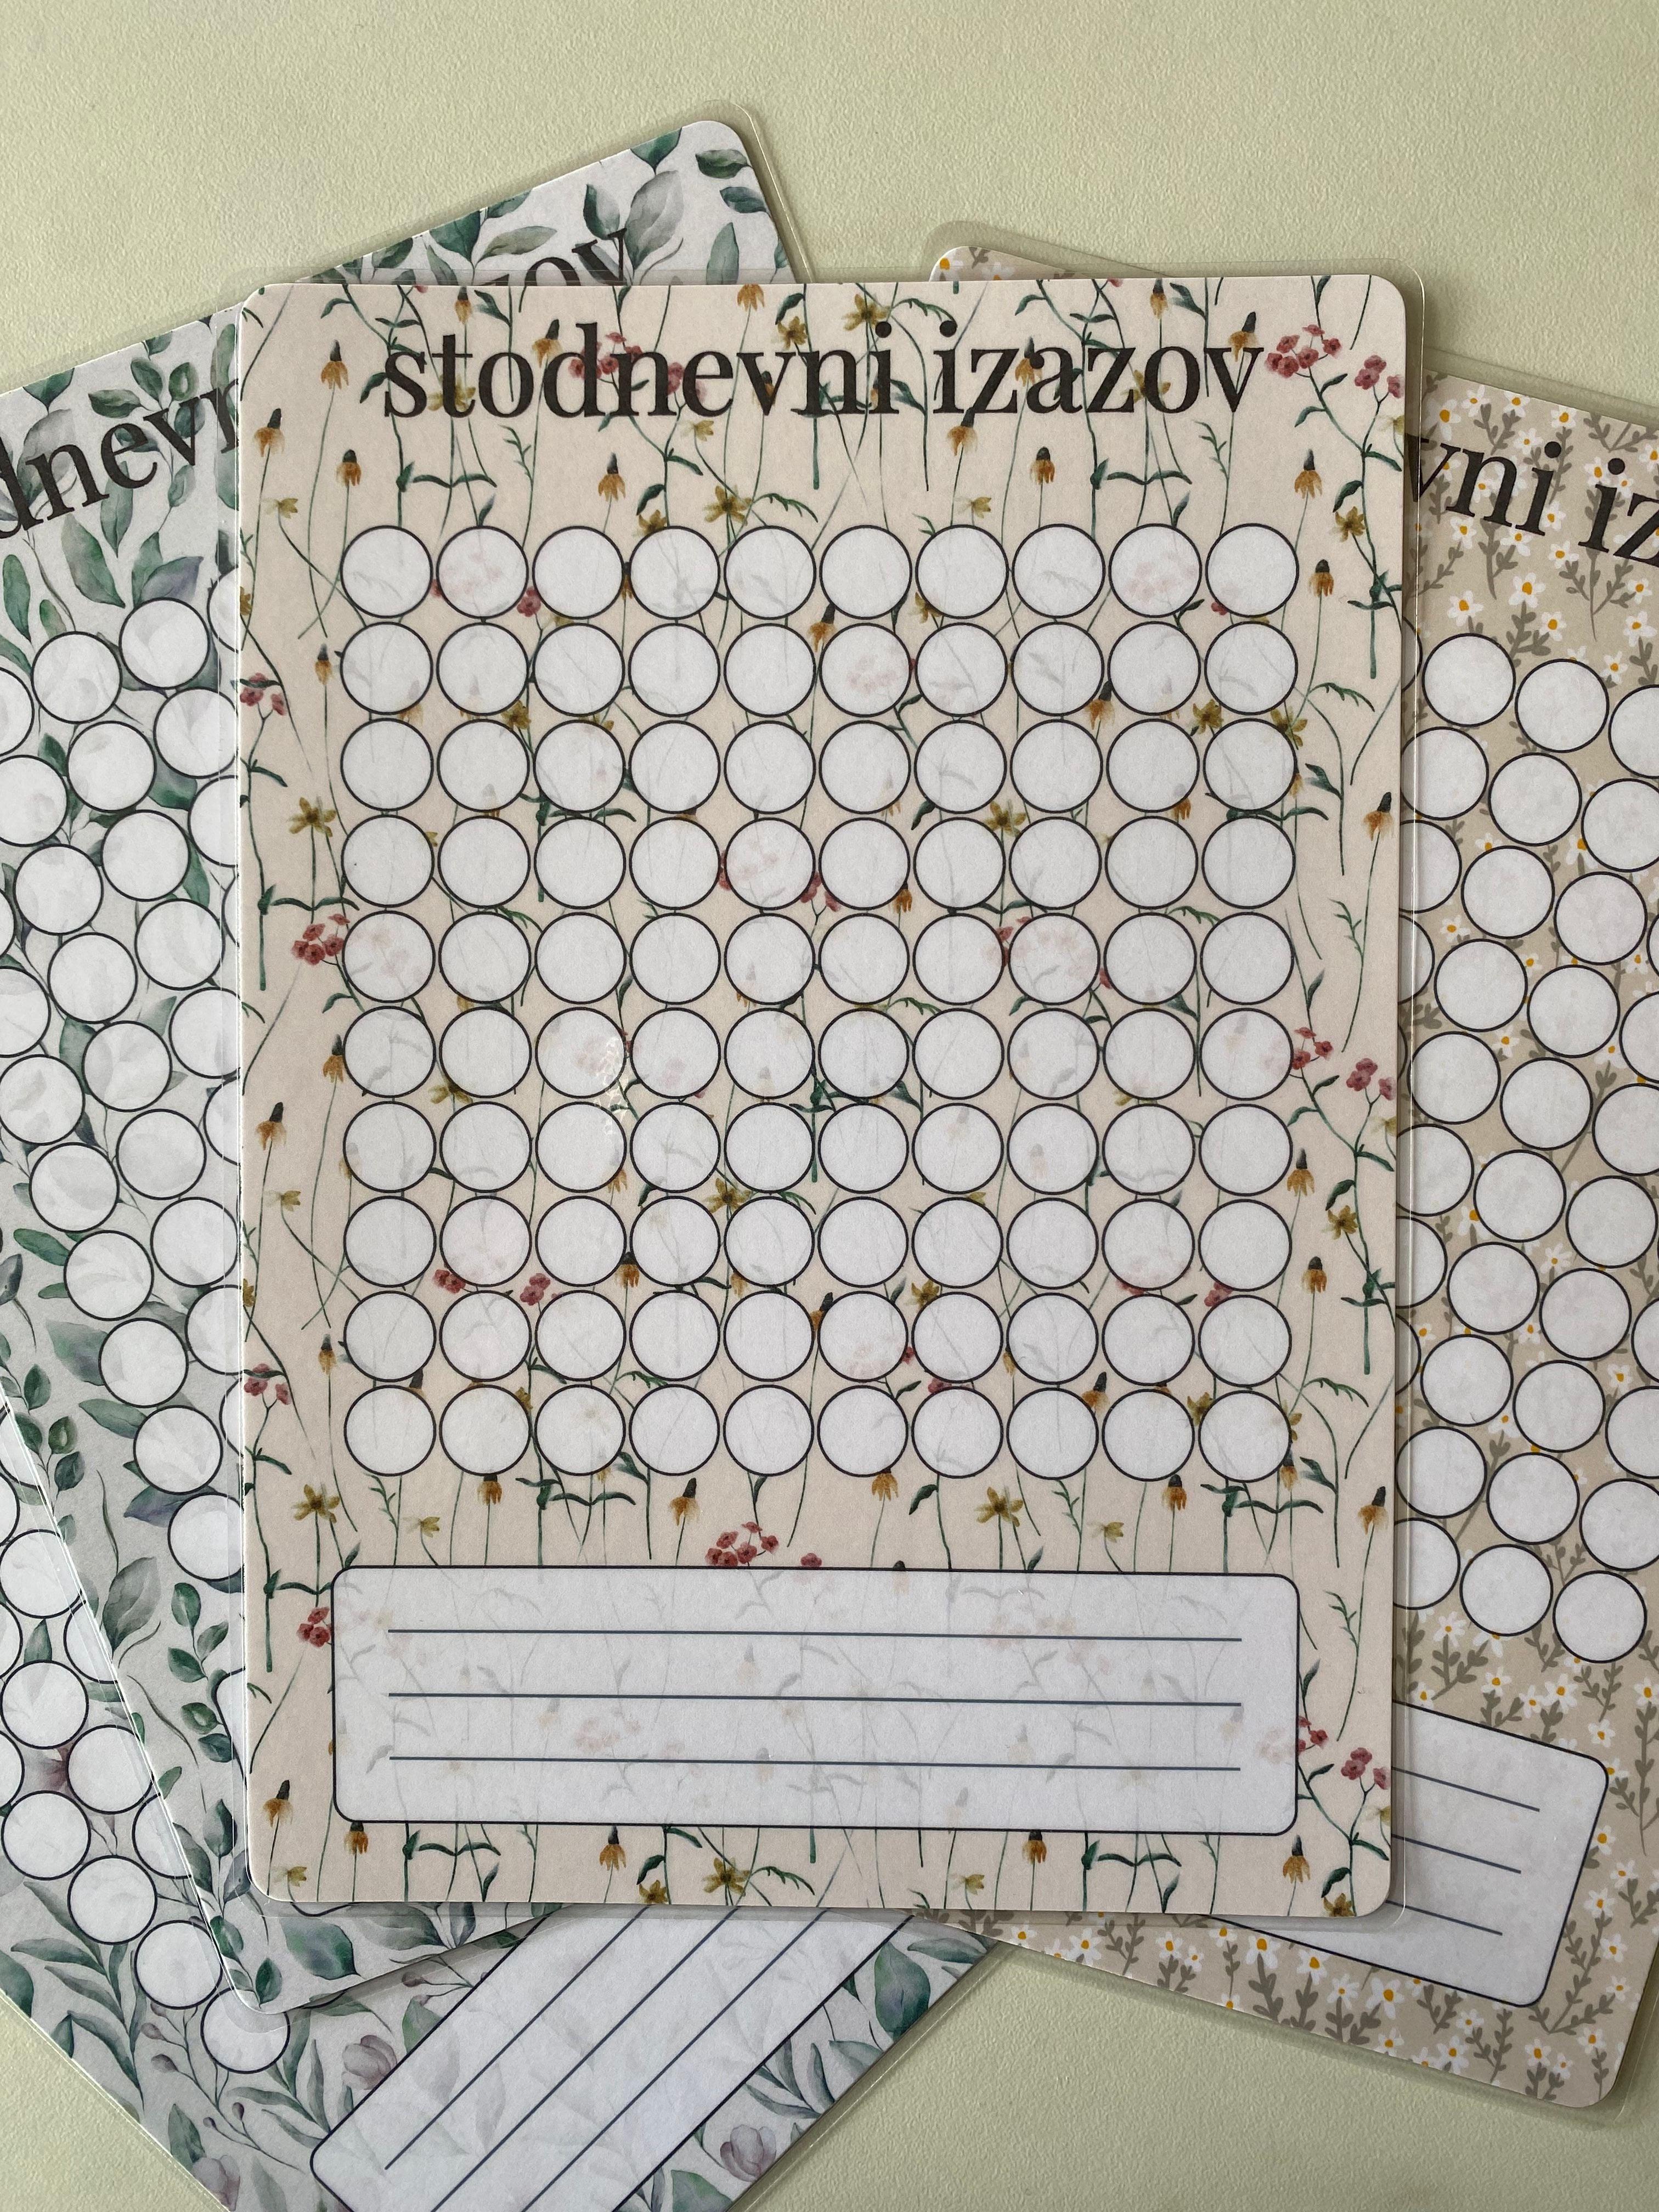 zov
stodnevni izazov
dnevn
vni iz